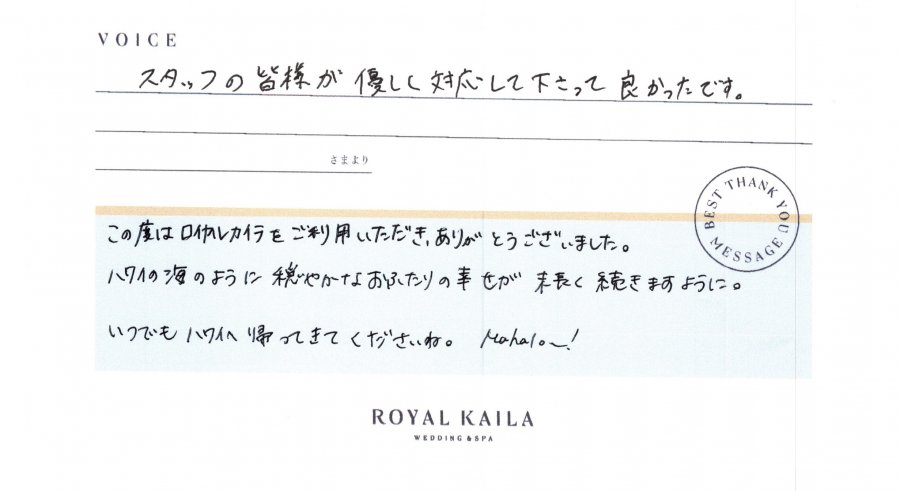 VOICE
スタッフの皆様が優しく対応して下さって良かったです。
さまより
BEST THANK YOU MESSAGE
この度はロイヤルカイラをご利用いただき、ありがとうございました。
ハワイの海のように穏やかなおふたりの幸せが末長く続きますように。
いつでもハワイへ帰ってきてくださいね。 Mahalo~!
ROYAL KAILA
WEDDING & SPA